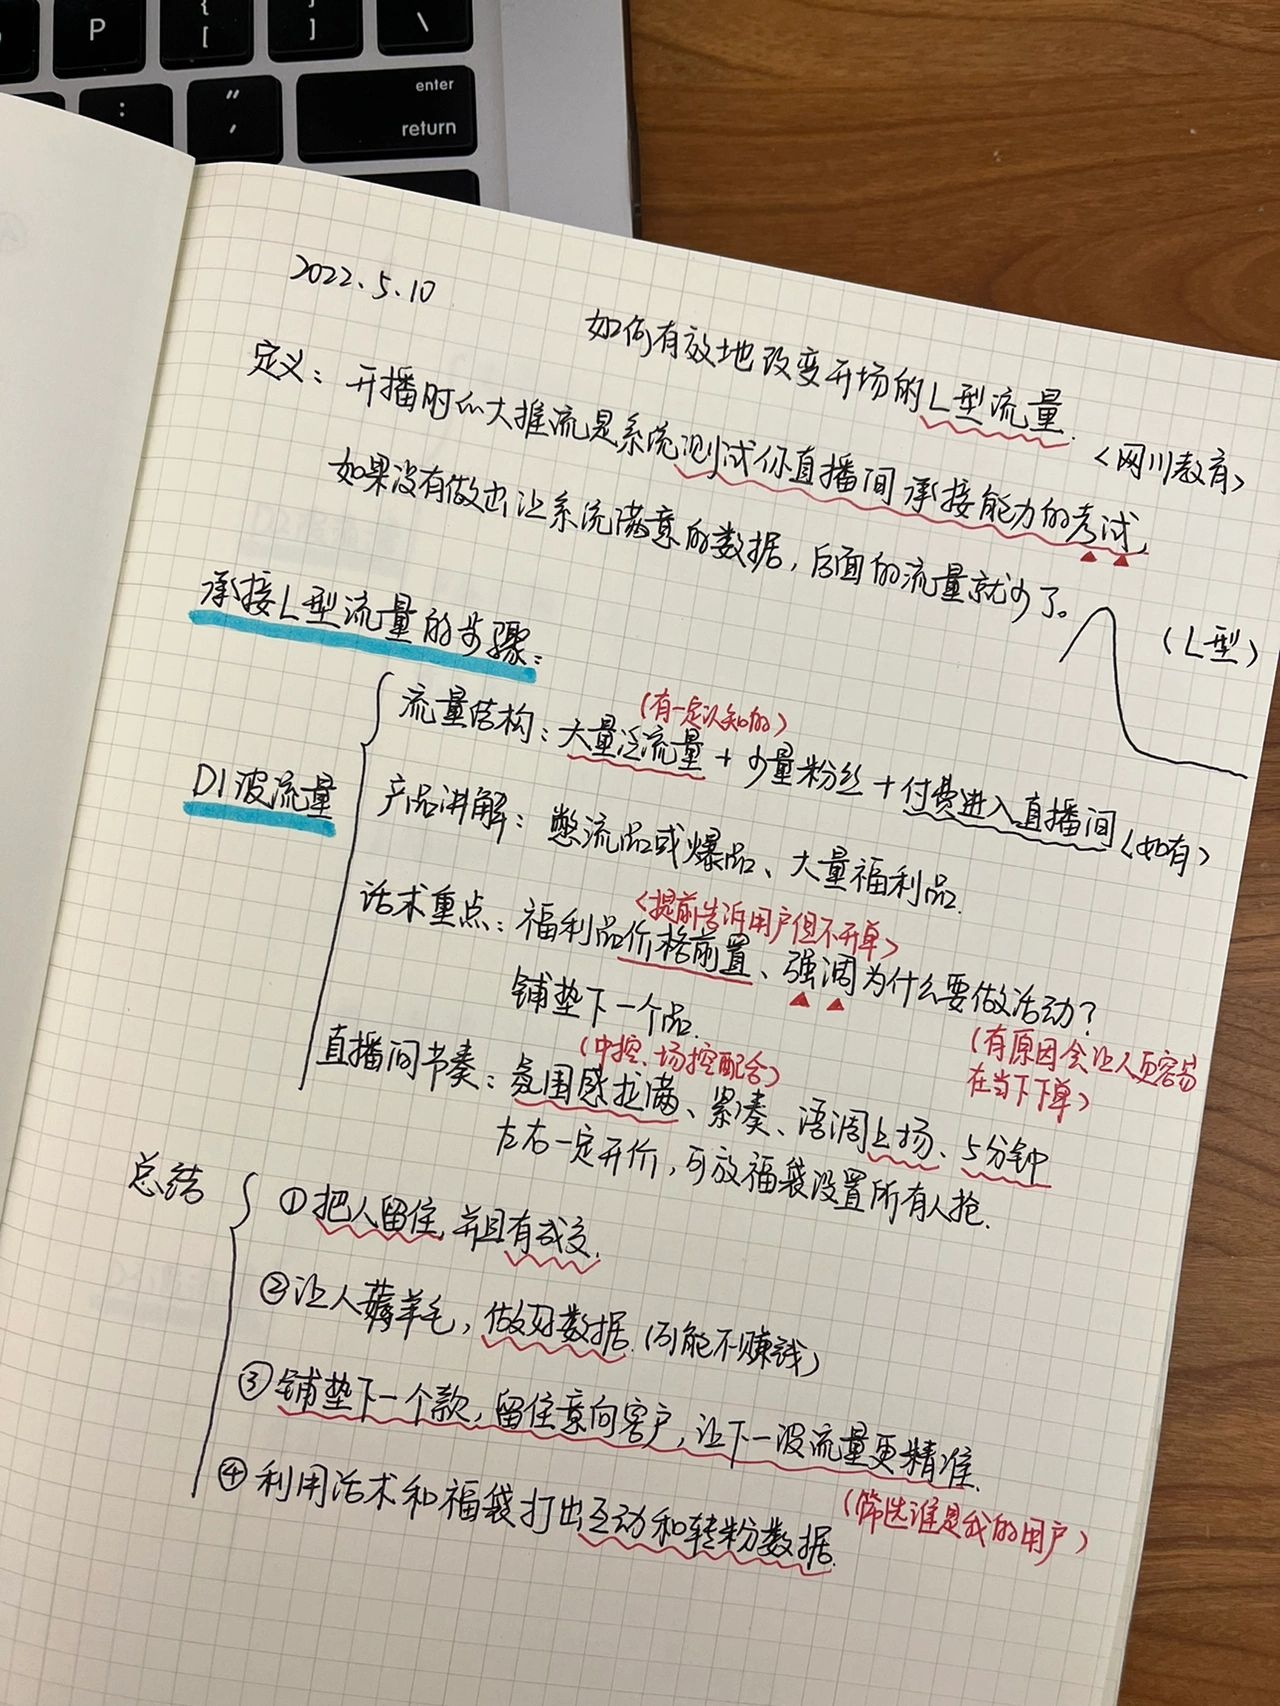 P
{
[
}
]
\
:
;
"
'
enter
return
2022.5.10
如何有效地改变开场的L型流量.
<网川教育>
定义：开播时的大推流是系统测试你直播间承接能力的考试,
如果没有做出让系统满意的数据，后面的流量就少了。
(L型)
承接L型流量的步骤：
(有一定认知的)
流量结构：大量泛流量+少量粉丝+付费进入直播间(如有)
D1波流量
产品讲解：憋流品或爆品、大量福利品.
<提前告诉用户但不开单>
话术重点：福利品价格前置、强调为什么要做活动？
铺垫下一个品.
(有原因会让人更容易
在当下下单)
(中控、场控配合)
直播间节奏：氛围感拉满、紧凑、语调上扬、5分钟
左右一定开价，可放福袋设置所有人抢.
总结
①把人留住,并且有成交.
②让人薅羊毛，做好数据.(可能不赚钱)
③铺垫下一个款，留住意向客户，让下一波流量更精准.
(筛选谁是我的用户)
④利用话术和福袋打出互动和转粉数据.